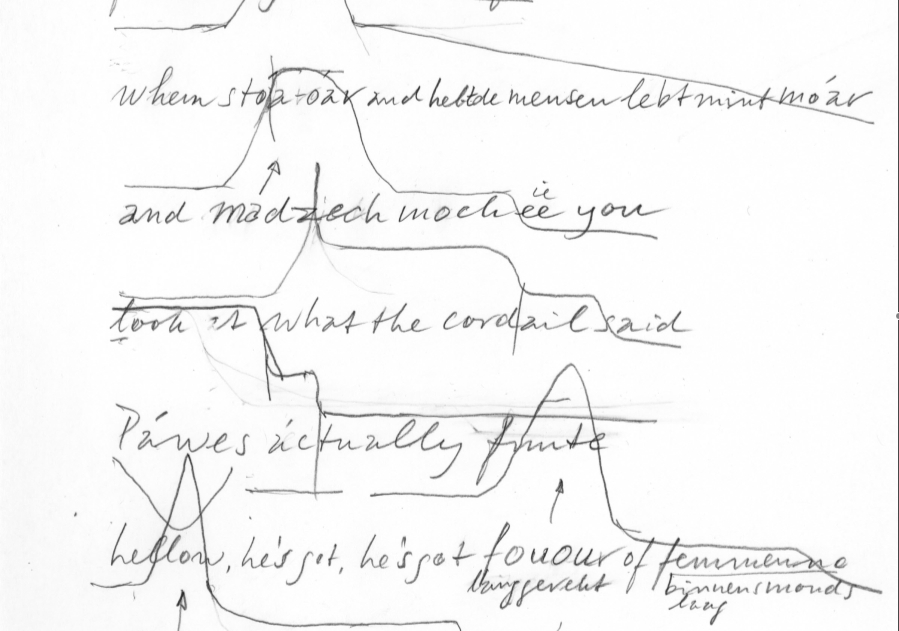 when stóa-óar and hebtde mensen lebt mint móár
and madzech moch ëë you
ie
took it what the cordail said
Páwes áctually frute
hellow, he's got, he's got fouour of femmenno
langgerekt binnensmonds
laag